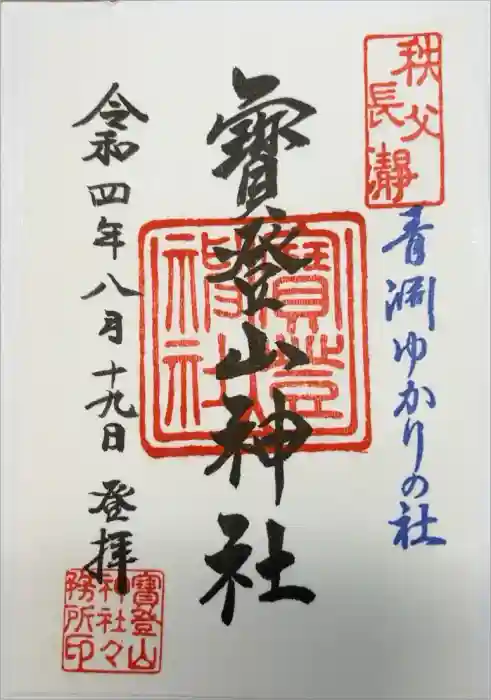 秩父
長瀞
青淵ゆかりの社
寶登山神社
寶登
神社
令和四年八月十九日 登拝
寶登山
神社々
務所印